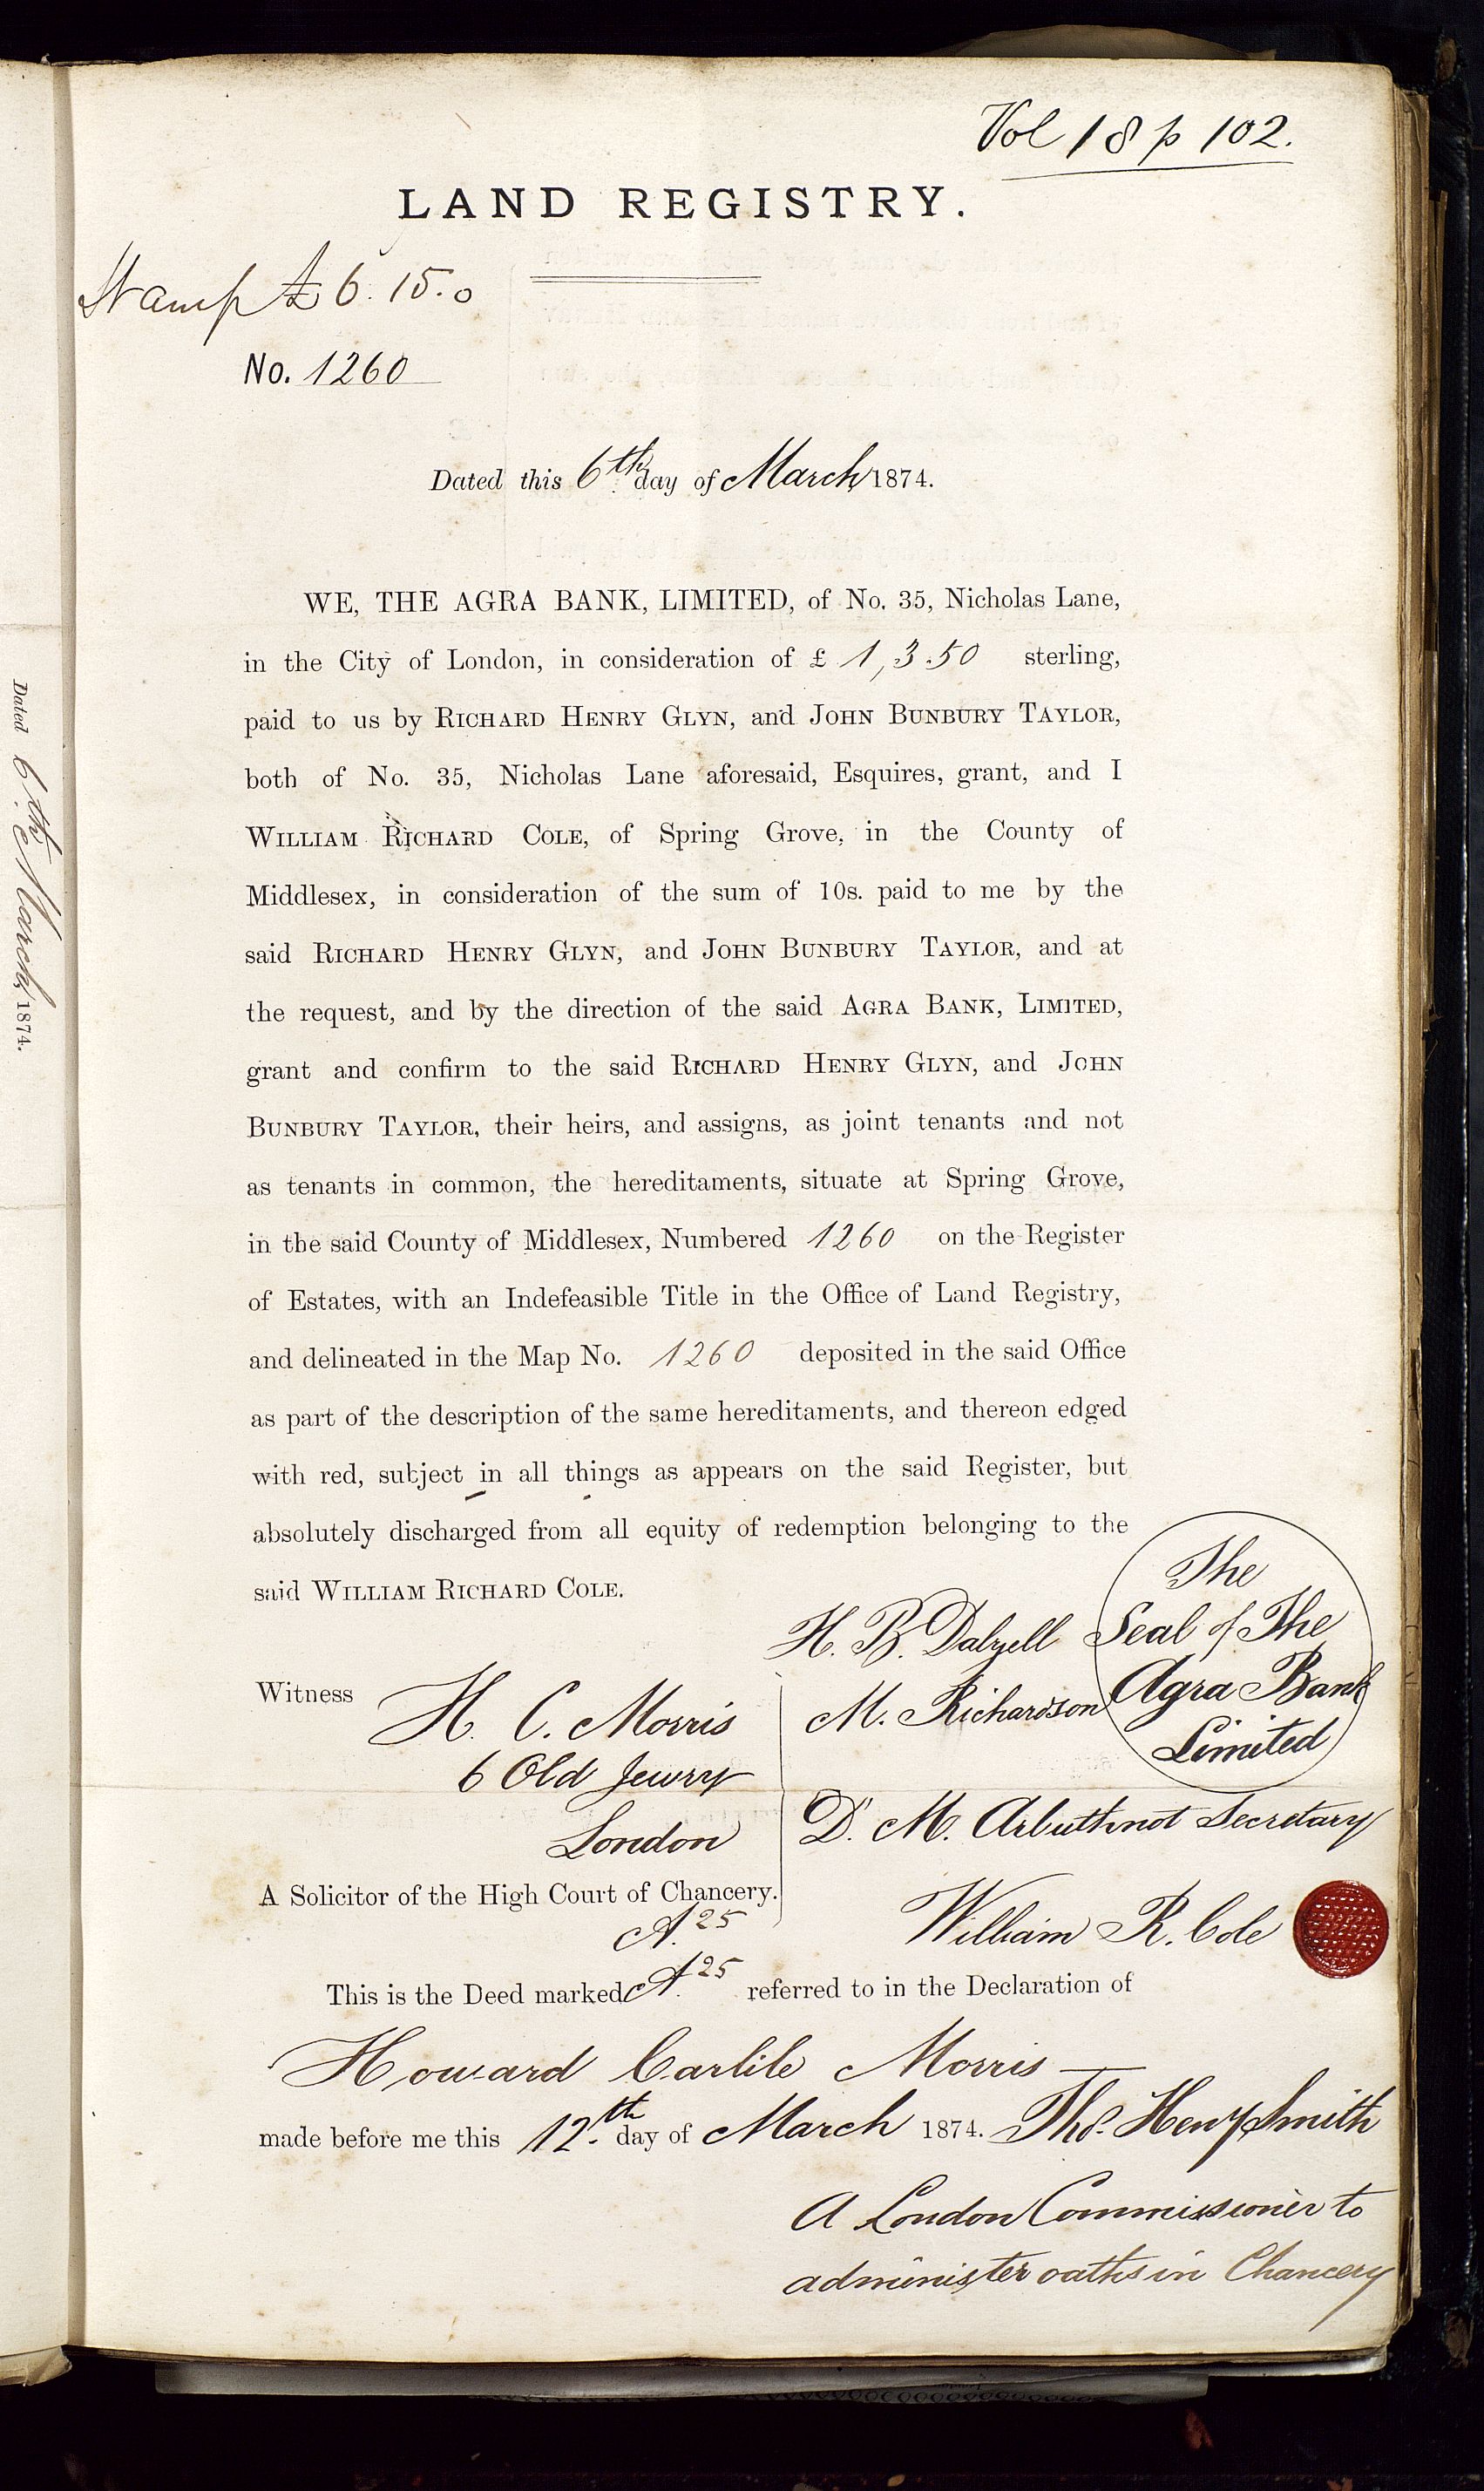 Vol 18 p 102.
LAND REGISTRY.
Stamp £6.15.0
No. 1260
Dated this 6th day of March 1874.
WE, THE AGRA BANK, LIMITED, of No. 35, Nicholas Lane,
in the City of London, in consideration of £ 1,350 sterling,
paid to us by RICHARD HENRY GLYN, and JOHN BUNBURY TAYLOR,
both of No. 35, Nicholas Lane aforesaid, Esquires, grant, and I
WILLIAM RICHARD COLE, of Spring Grove, in the County of
Middlesex, in consideration of the sum of 10s. paid to me by the
said RICHARD HENRY GLYN, and JOHN BUNBURY TAYLOR, and at
the request, and by the direction of the said AGRA BANK, LIMITED,
grant and confirm to the said RICHARD HENRY GLYN, and JOHN
BUNBURY TAYLOR, their heirs, and assigns, as joint tenants and not
as tenants in common, the hereditaments, situate at Spring Grove,
in the said County of Middlesex, Numbered 1260 on the Register
of Estates, with an Indefeasible Title in the Office of Land Registry,
and delineated in the Map No. 1260 deposited in the said Office
as part of the description of the same hereditaments, and thereon edged
with red, subject in all things as appears on the said Register, but
absolutely discharged from all equity of redemption belonging to the
said WILLIAM RICHARD COLE.
The
Seal of The
Agra Bank
Limited
H. B. Dalyell
M. Richardson
D. M. Arbuthnot Secretary
William R. Cole
Witness
H. C. Morris
6 Old Jewry
London
A Solicitor of the High Court of Chancery.
A.25
This is the Deed marked A.25 referred to in the Declaration of
Howard Carlile Morris
made before me this 12th day of March 1874. Thos. Henry Smith
A London Commissioner to
administer oaths in Chancery
Dated 6th March 1874.